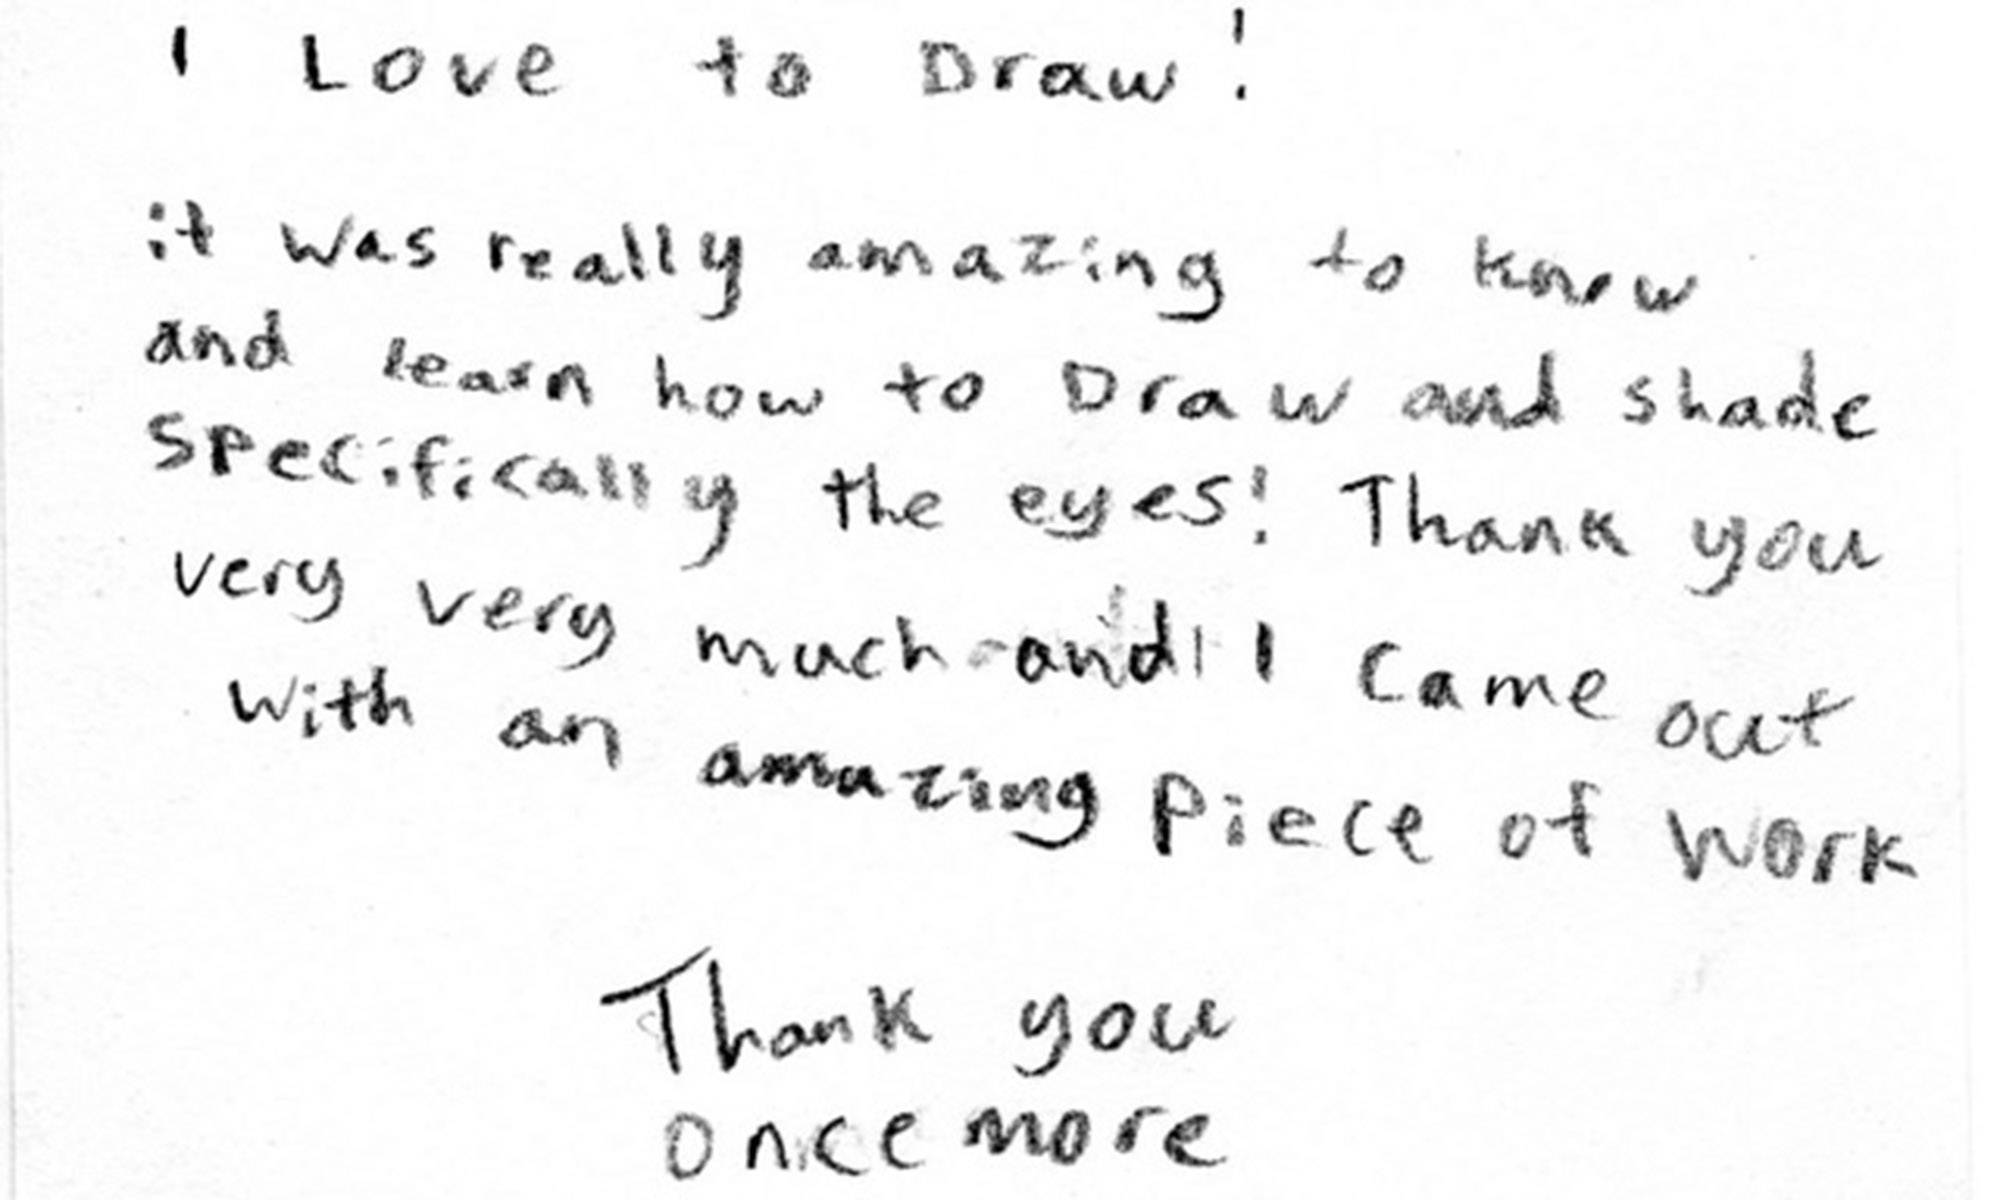 I Love to Draw!
it was really amazing to know
and learn how to Draw and shade
specifically the eyes! Thank you
very very much and I came out
with an amazing piece of work
Thank you
once more